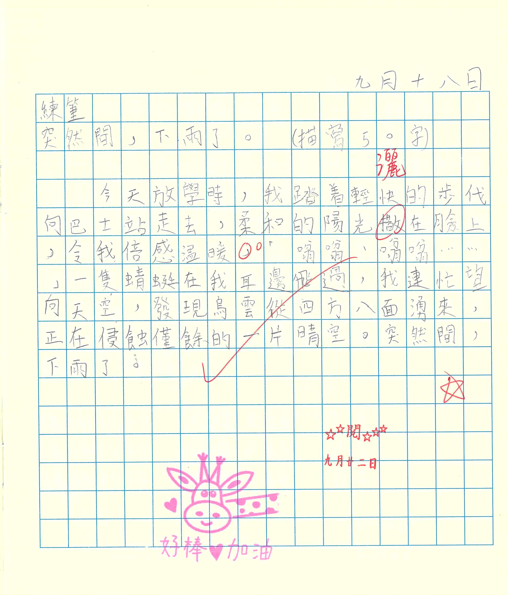 九月十八日
練筆
突然間，下雨了。(描寫50字)
灑
今天放學時，我踏着輕快的步代
向巴士站走去，柔和的陽光撒在臉上
，令我倍感溫暖。「嗡嗡……嗡嗡……」
，一隻蜻蜓在我耳邊飛過，我連忙望
向天空，發現烏雲從四方八面湧來，
正在侵蝕僅餘的一片晴空。突然間，
下雨了。
☆☆閱☆☆☆
九月廿二日
好棒♥加油